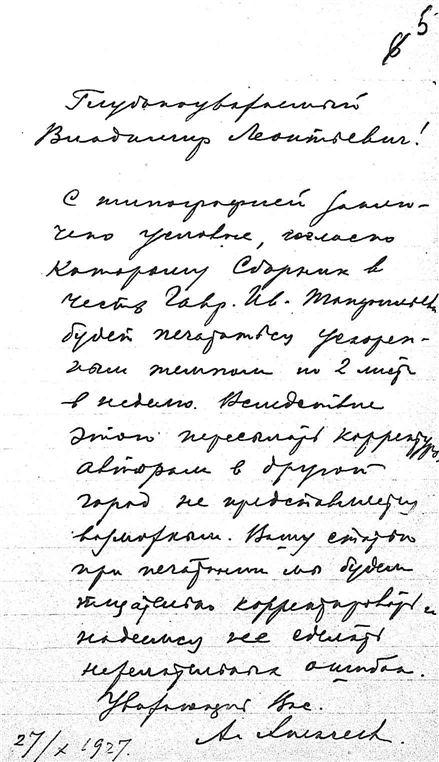 5
Глубокоуважаемый
Владимир Леонтьевич!
С типографией заклю-
чено условие, согласно
которому Сборник в
честь Гавр. Ив. Танфильева
будет печататься ускорен-
ным темпом по 2 листа
в неделю. Вследствие
этого пересылать корректуры
авторам в другой
город не представляется
возможным. Вашу статью
при печатании мы будем
тщательно корректировать и
надеемся не сделать
нежелательных ошибок.
Уважающий Вас
27/X 1927.